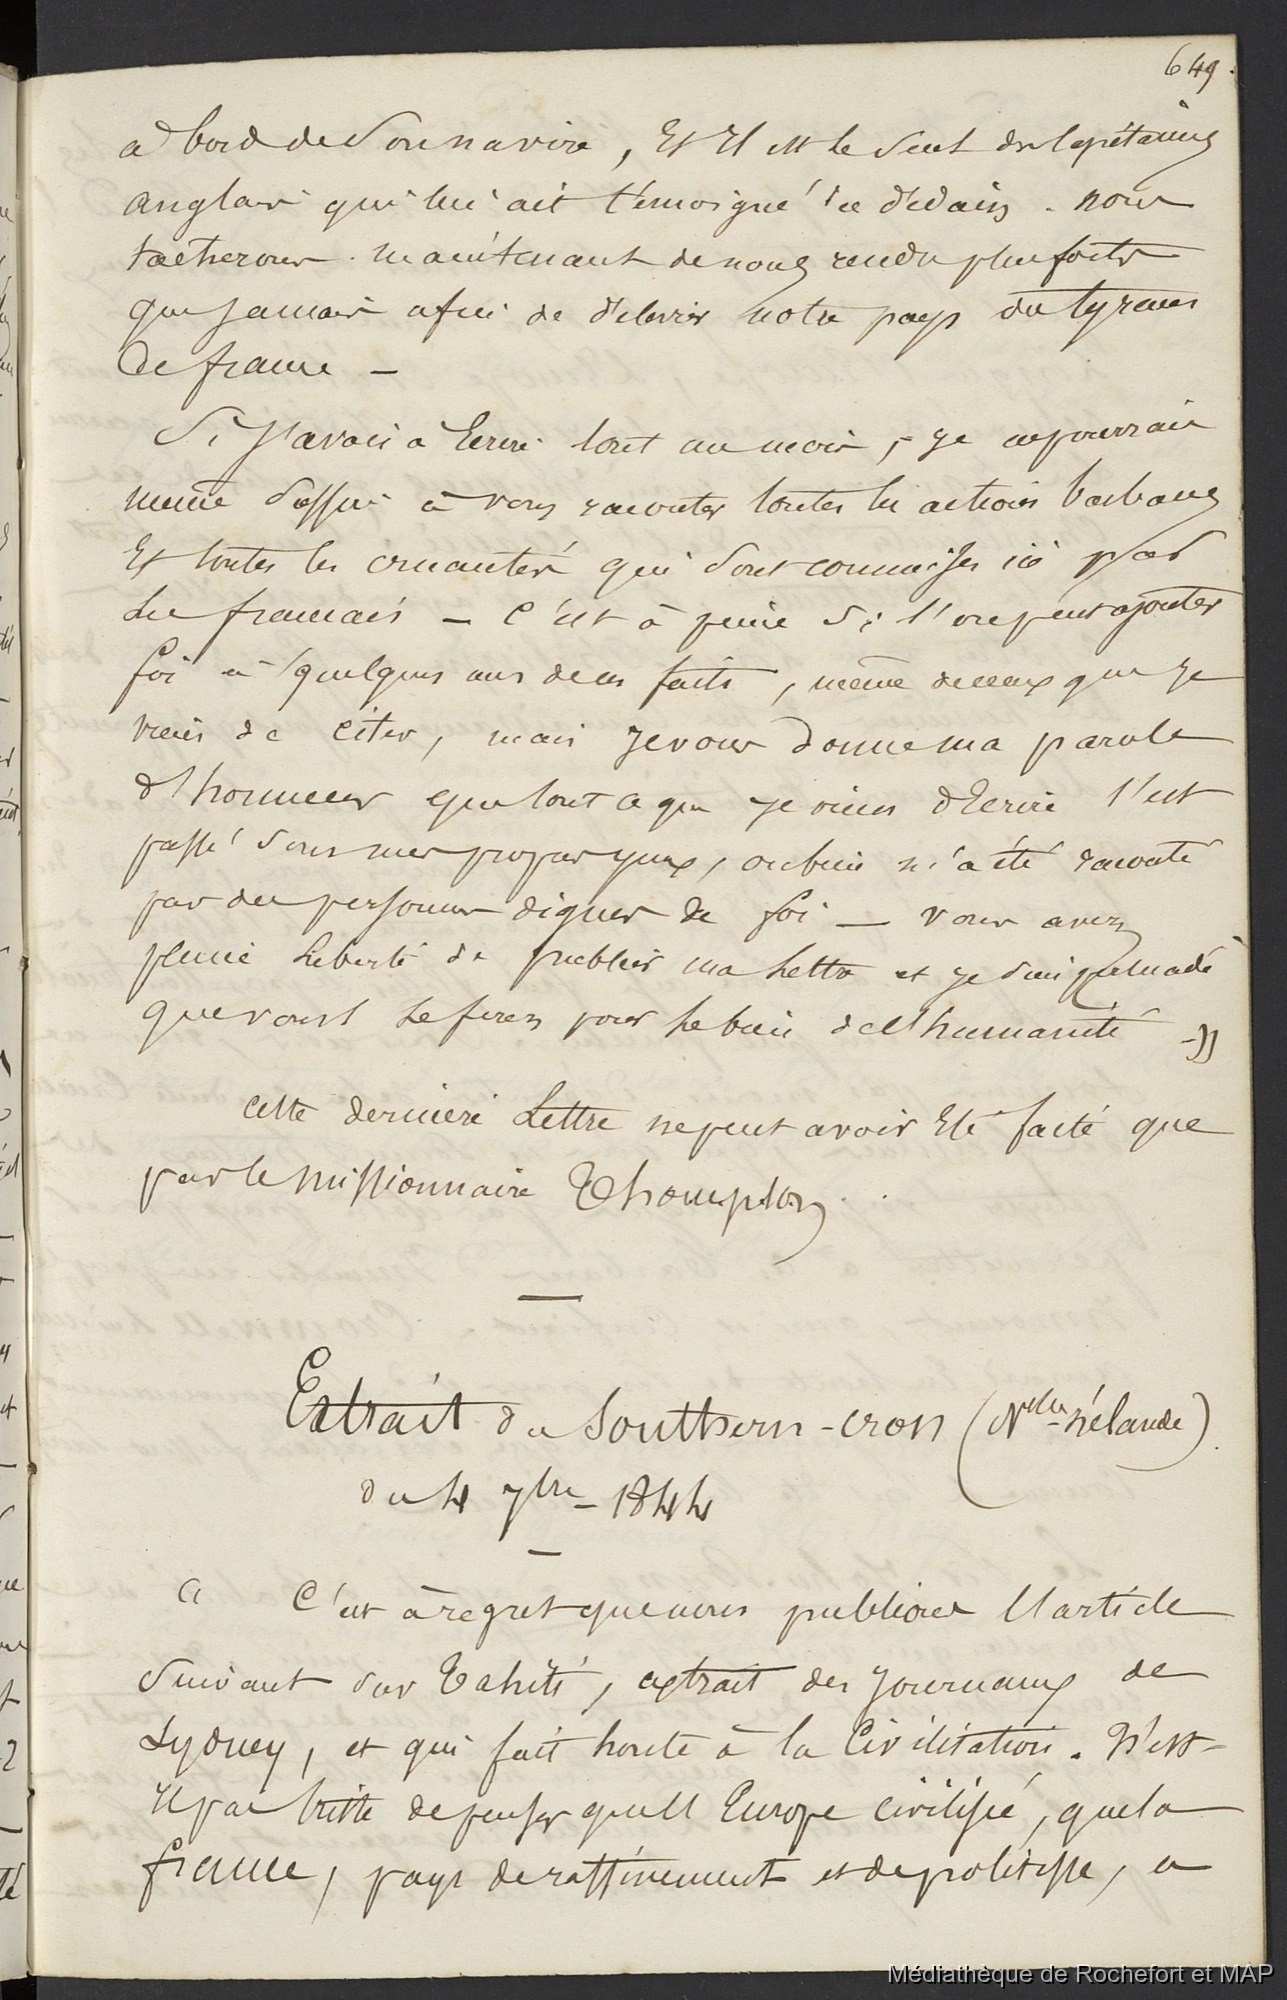 649.
a bord de son navire, Et Il est le seul des Capitaines
anglais qui lui ait témoigné du dédain. nous
tacherons maintenant de nous rendre plus forts
que jamais afin de délivrer notre pays des tyrans
de france —
Si J'avais à Ecrire tout un mois, je ne pourrais
même suffire à vous raconter toutes les actions barbares
Et toutes les cruautés qui sont commises ici par
Les français — C'est à peine si l'on peut ajouter
foi à quelques uns de ces faits, même de ceux que je
viens de citer, mais je vous donne ma parole
d'honneur que tout ce que je viens d'Ecrire s'est
passé sous mes propres yeux, ou bien m'a été raconté
par des personnes dignes de foi — Vous avez
pleine Liberté de publier ma Lettre et je suis persuadé
que vous Le ferez pour Le bien de l'humanité —»
Cette derniere Lettre ne peut avoir Eté faite que
par le Missionnaire Thompson
Extrait du Southern-cross (Nelle-Zélande)
du 4 7bre 1844
« C'est à regret que nous publions l'article
Suivant sur Tahiti, extrait des journaux de
Sydney, et qui fait honte à la Civilisation. N'est-
Il pas triste de penser que l'Europe civilisée, que la
france, pays de raffinement et de politesse, a
Médiathèque de Rochefort et MAP